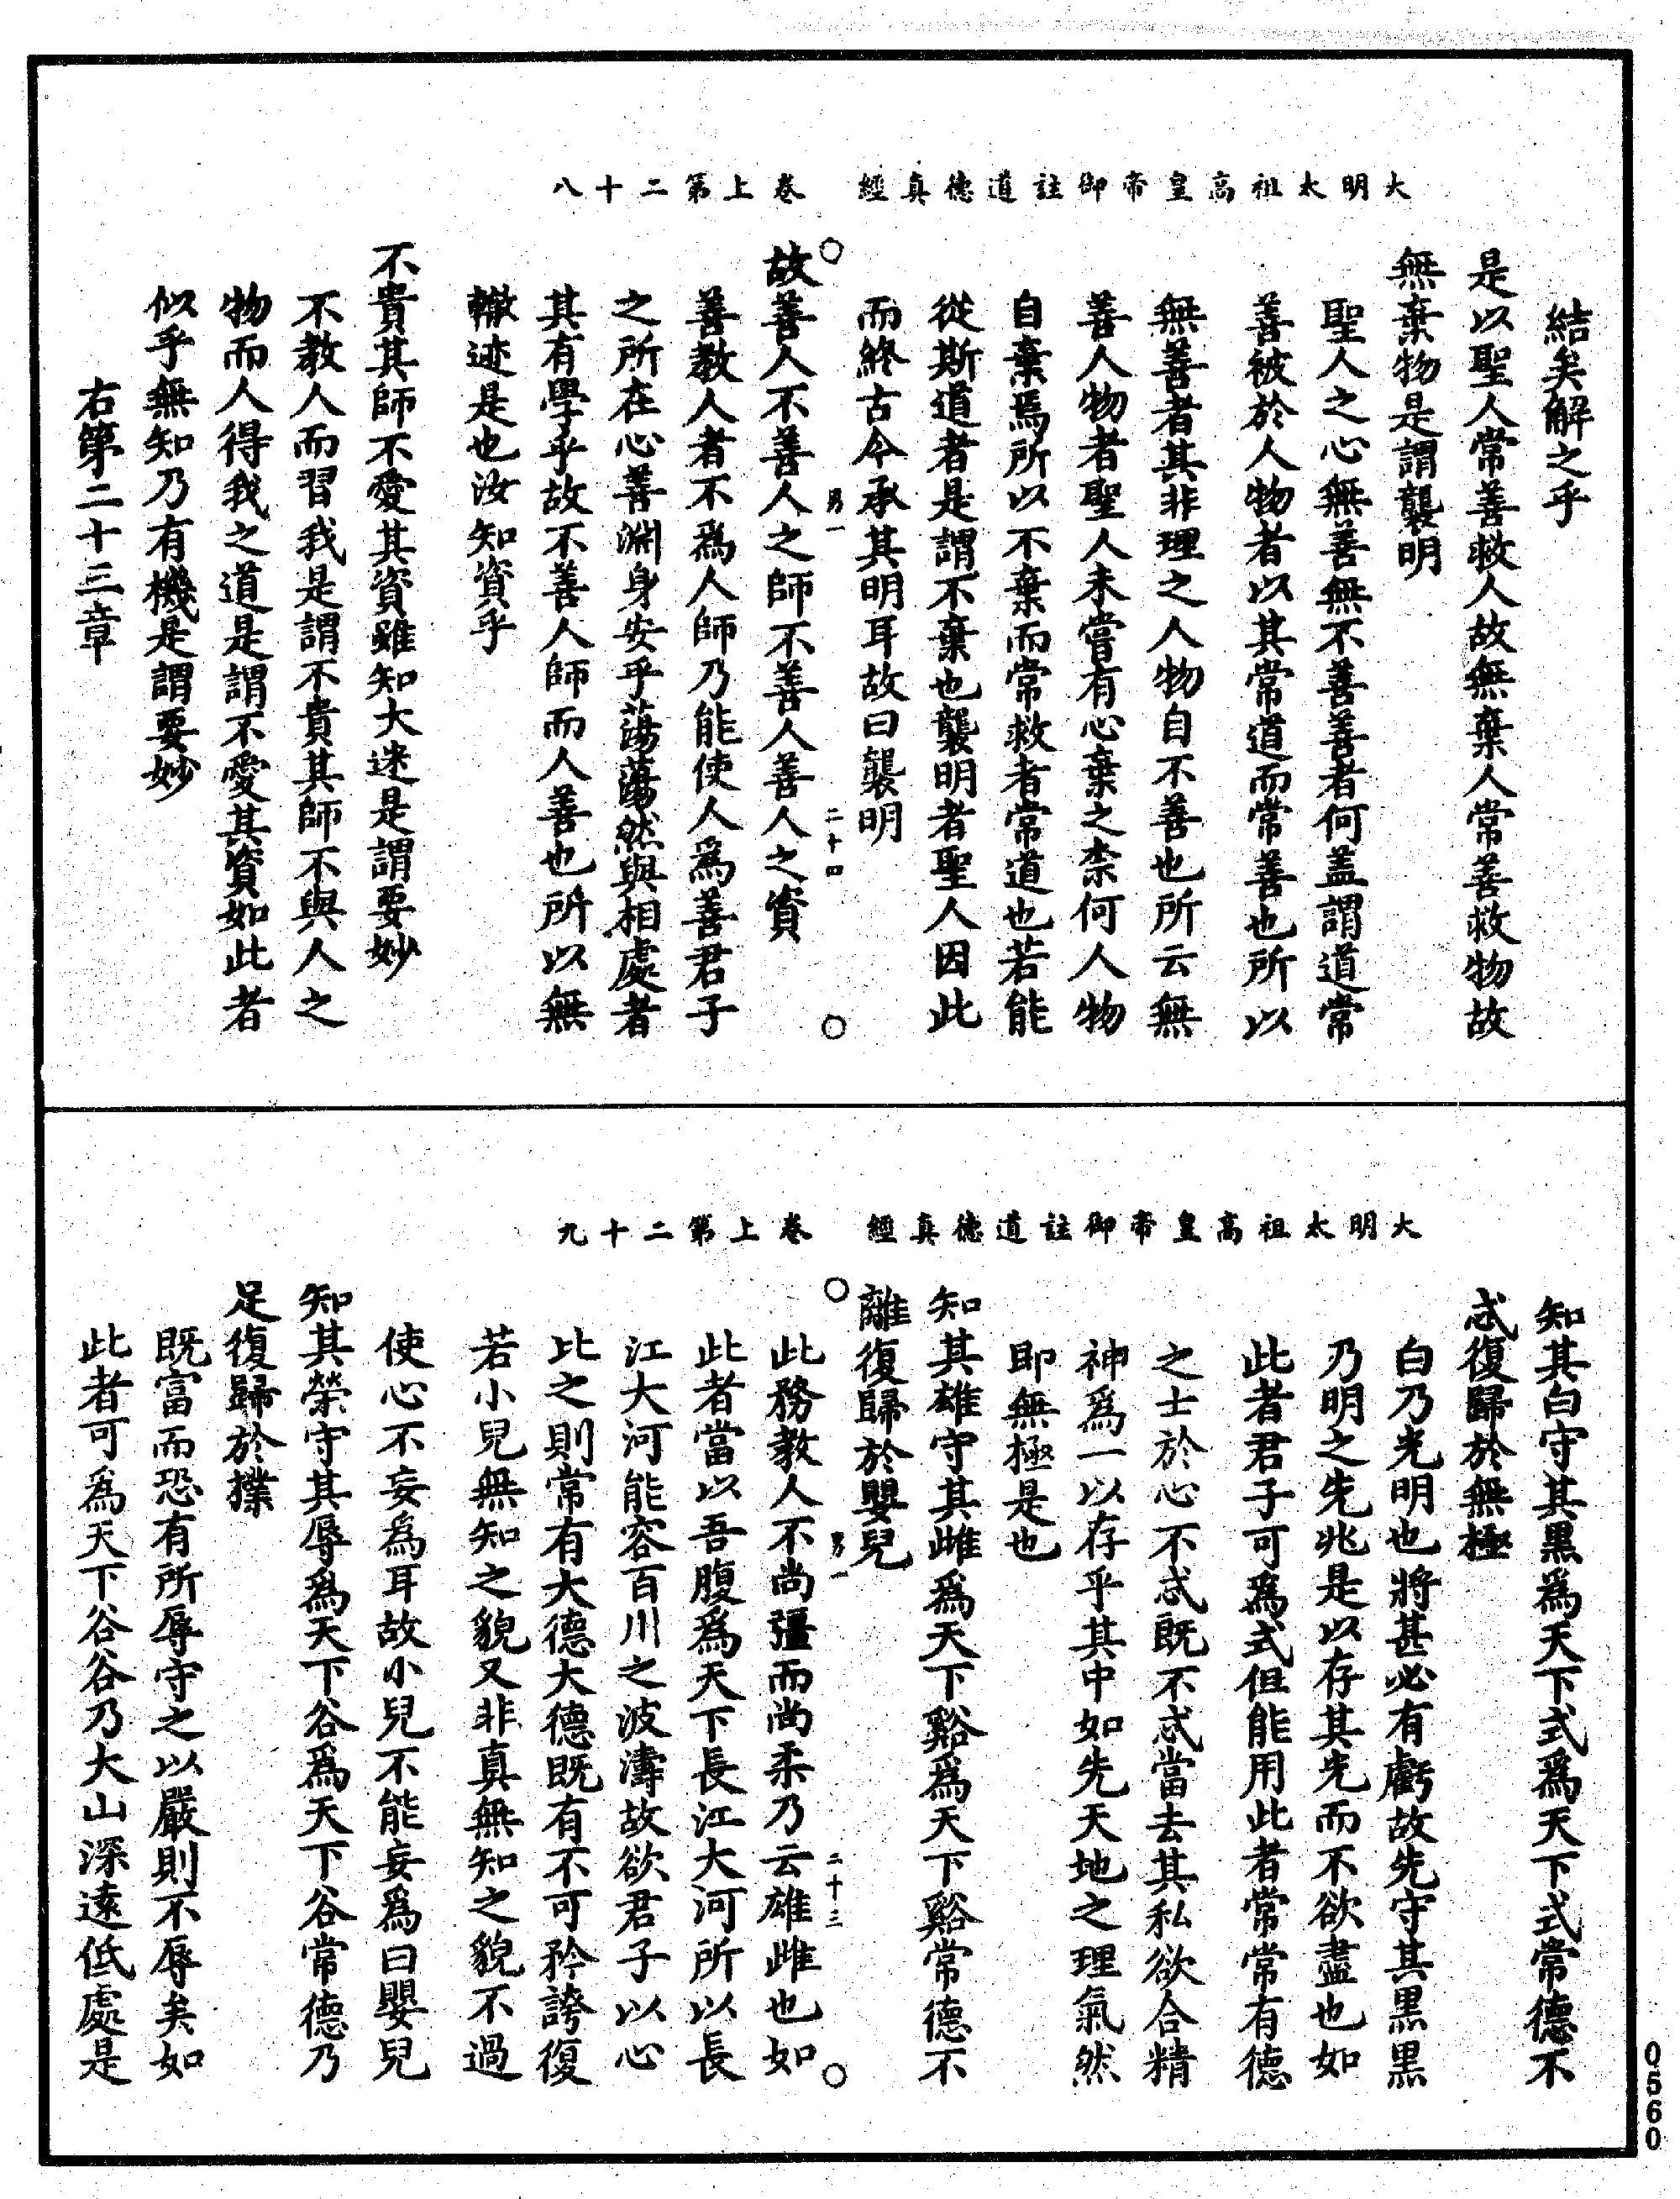 大明太祖高皇帝御註道德真經　卷上第二十八
結矣解之乎
是以聖人常善救人故無棄人常善救物故
無棄物是謂襲明
聖人之心無善無不善善者何盖謂道常
善被於人物者以其常道而常善也所以
無善者其非理之人物自不善也所云無
善人物者聖人未嘗有心棄之柰何人物
自棄焉所以不棄而常救者常道也若能
從斯道者是謂不棄也襲明者聖人因此
而終古今承其明耳故曰襲明
男一　二十四
故善人不善人之師不善人善人之資
善教人者不爲人師乃能使人爲善君子
之所在心善淵身安乎蕩蕩然與相處者
其有學乎故不善人師而人善也所以無
轍迹是也汝知資乎
不貴其師不愛其資雖知大迷是謂要妙
不教人而習我是謂不貴其師不與人之
物而人得我之道是謂不愛其資如此者
似乎無知乃有機是謂要妙
右第二十三章
大明太祖高皇帝御註道德真經　卷上第二十九
知其白守其黒爲天下式爲天下式常德不
忒復歸於無極
白乃光明也將甚必有虧故先守其黒黒
乃明之先兆是以存其先而不欲盡也如
此者君子可爲式但能用此者常常有德
之士於心不忒既不忒當去其私欲合精
神爲一以存乎其中如先天地之理氣然
即無極是也
知其雄守其雌爲天下谿爲天下谿常德不
離復歸於嬰兒
男一　二十三
此務教人不尚彊而尚柔乃云雄雌也如
此者當以吾腹爲天下長江大河所以長
江大河能容百川之波濤故欲君子以心
比之則常有大德大德既有不可矜誇復
若小兒無知之貌又非真無知之貌不過
使心不妄爲耳故小兒不能妄爲曰嬰兒
知其榮守其辱爲天下谷爲天下谷常德乃
足復歸於撲
既富而恐有所辱守之以嚴則不辱矣如
此者可爲天下谷谷乃大山深遠低處是
0560